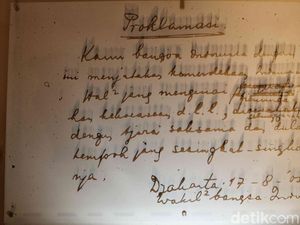 Proklamasi
Kami bangsa Indonesia dengan
ini menjatakan kemerdekaan
Hal² jang mengenai
d.l.l.,
dengan tjara saksama dan
tempoh jang sesingkat-singkat
nja.
Djakarta, 17-8-'05
Wakil² bangsa
detikcom